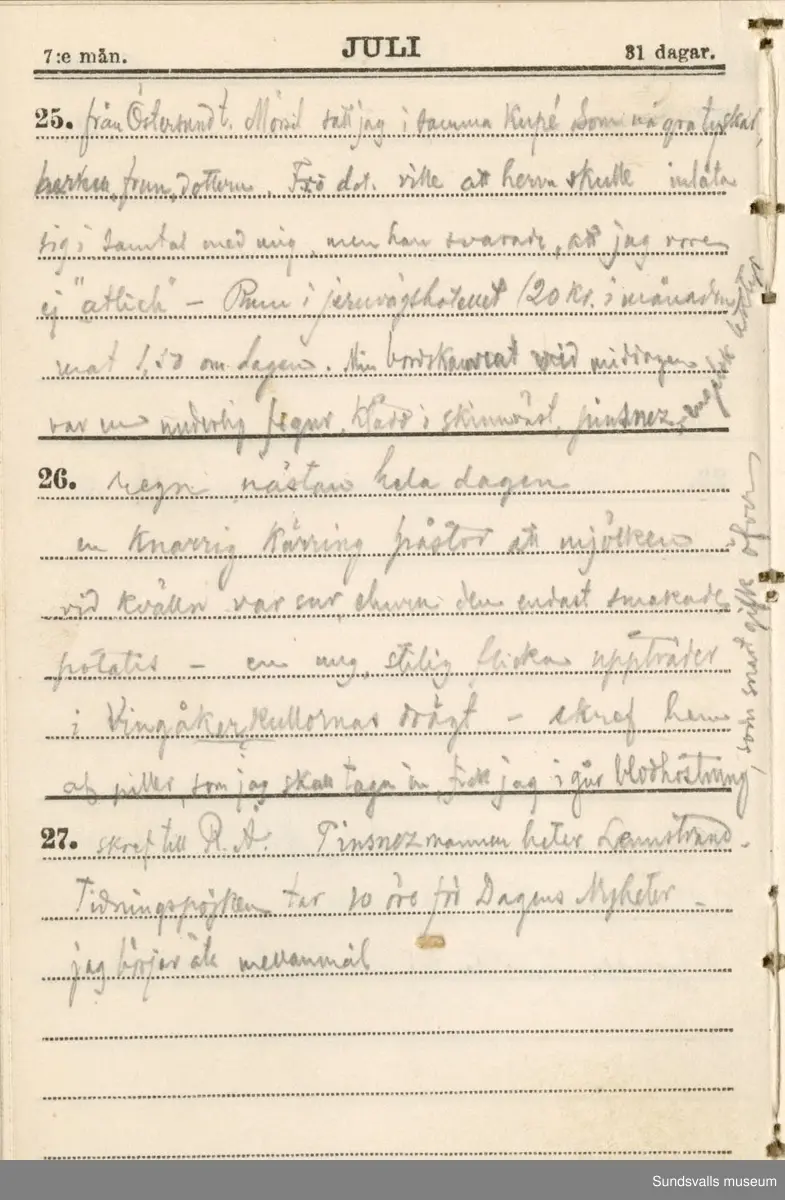 7:e mån. JULI 31 dagar.
25. från Östersund t. Mörsil satt jag i samma kupé som några tyskar,
herrn, frun, dottern. ville att herrn skulle inlåta
sig i samtal med mig, men han svarade, att jag vore
ej "adlich" – Rum i jernvägshotellet (20 kr. i månaden
mat 1,50 om dagen. Min vid middagen
var en underlig figur, klädd i skinnväst, pinsnez,
26. regn nästan hela dagen
en knarrig kärring påstod att mjölken
vid kvälln var sur, ehuru den endast smakade
potatis – en ung, stilig flicka uppträder
i Vingåkerkullornas drägt – skref hem
att piller, som jag skall taga in, fick jag i går blodhostning
, som snart gick öfver
27. skref till R. A. Pinsnezmannen heter Lennstrand.
Tidningspojken tar 10 öre för Dagens Nyheter –
jag börjar äta mellanmål
Sundsvalls museum